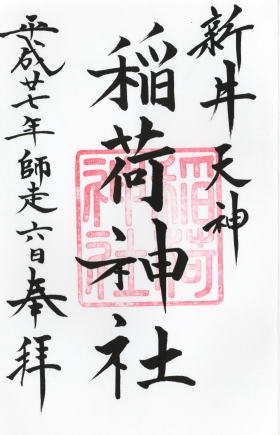 新井天神
稲荷神社
平成廿七年師走六日奉拝
稲荷
神社